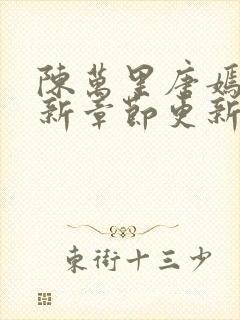 陳萬里唐嫣
新章節更新
束街十三少